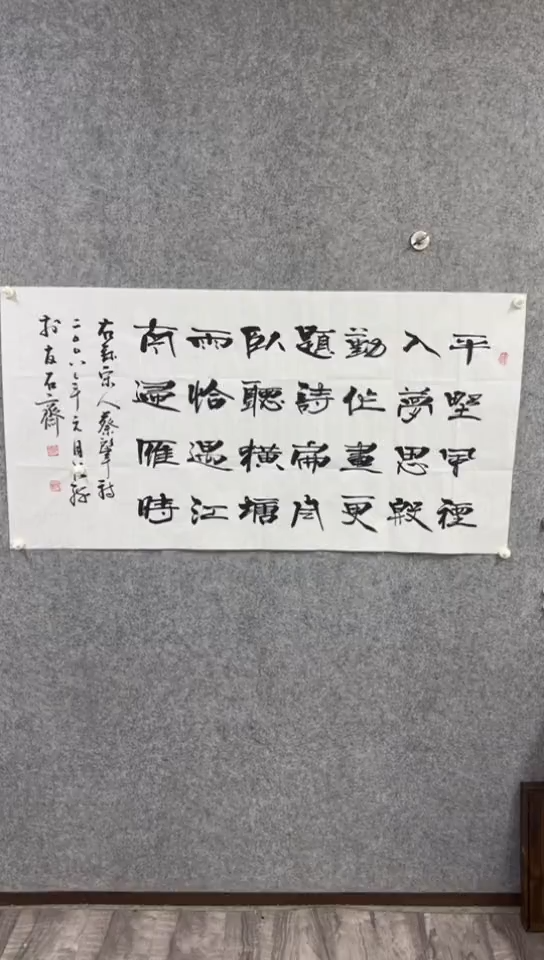 平野風煙
入夢思殷
勤作畫更
題詩扁舟
臥聽橫塘
雨恰遇江
南歸雁時
右錄宋人蔡肇詩
二〇〇八年元月
於友石齋